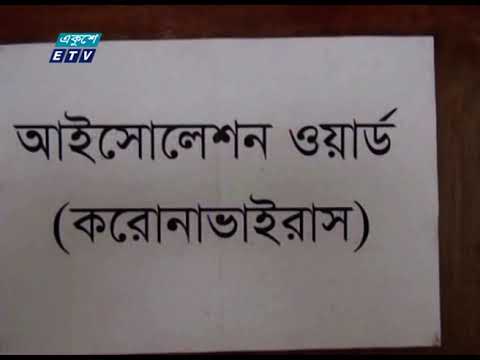 একুশে
ETV
আইসোলেশন ওয়ার্ড
(করোনাভাইরাস)